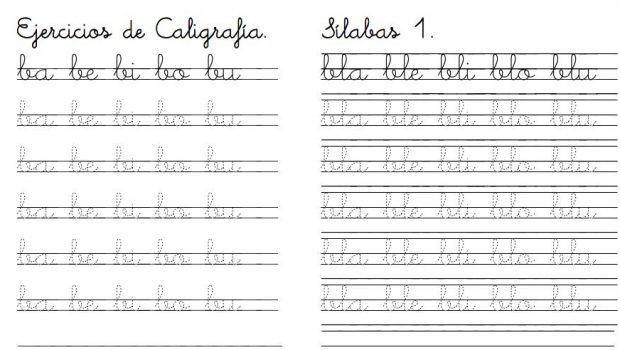 Ejercicios de Caligrafía.
ba be bi bo bu
ba be bi bo bu
ba be bi bo bu
ba be bi bo bu
ba be bi bo bu
ba be bi bo bu
Sílabas 1.
bla ble bli blo blu
bla ble bli blo blu
bla ble bli blo blu
bla ble bli blo blu
bla ble bli blo blu
bla ble bli blo blu